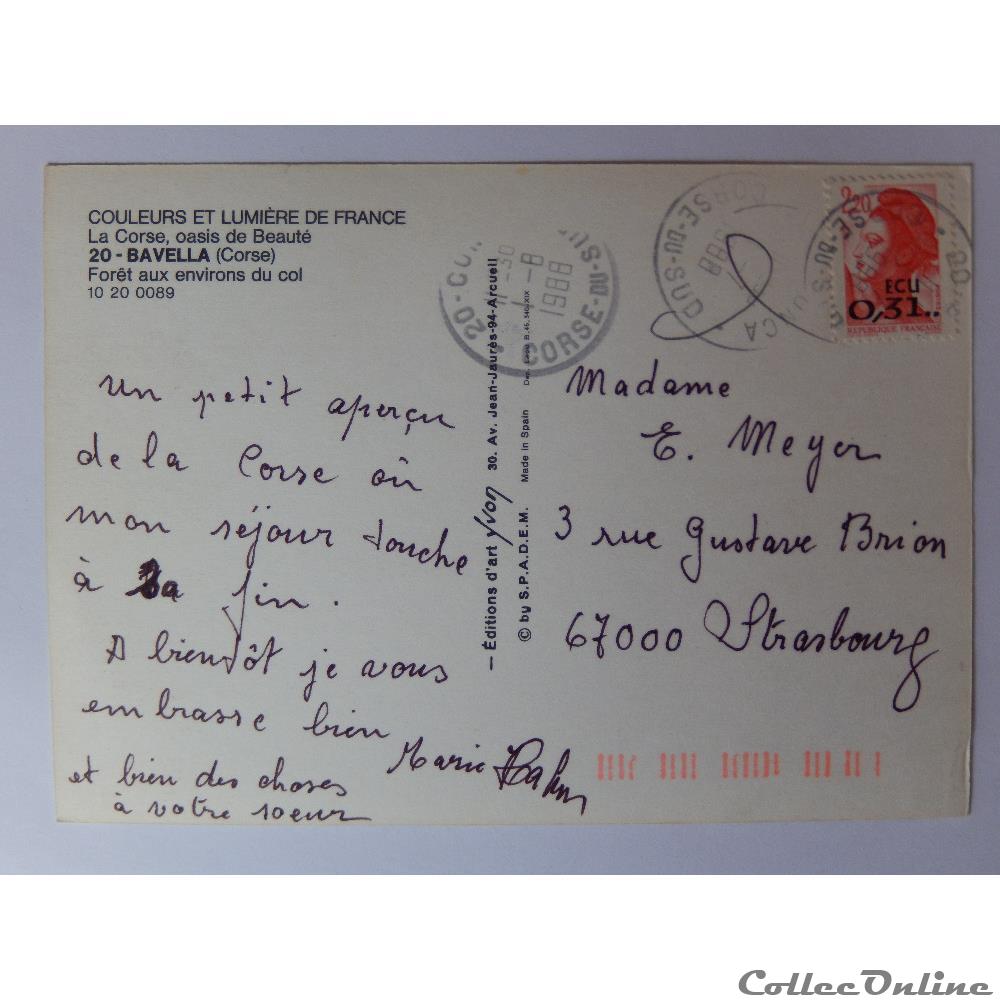 COULEURS ET LUMIÈRE DE FRANCE
La Corse, oasis de Beauté
20 - BAVELLA (Corse)
Forêt aux environs du col
10 20 0089
un petit aperçu
de la Corse où
mon séjour touche
à la fin.
A bientôt je vous
embrasse bien
Marie
et bien des choses
à votre soeur
— Éditions d'art yvon 30. Av. Jean-Jaurès-94-Arcueil
© by S.P.A.D.E.M. Made in Spain
1-8
1988
CORSE-DU-SU
CORSE-DU-SUD
2,20
ECU
0,31..
REPUBLIQUE FRANÇAISE
Madame
E. Meyer
3 rue Gustave Brion
67000 Strasbourg
CollecOnline